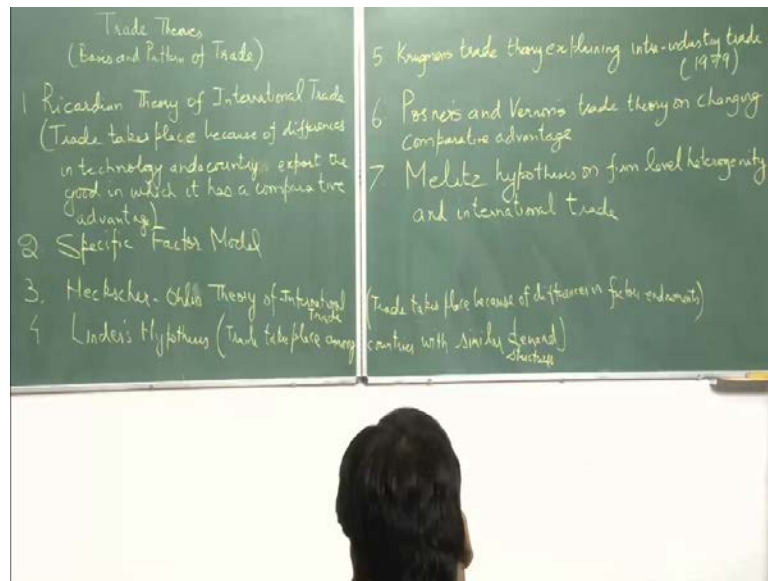 Trade Theories
(Basis and Pattern of Trade)
1 Ricardian Theory of International Trade
(Trade takes place because of differences
in technology and a country export the
good in which it has a comparative
advantage)
2 Specific Factor Model
3. Heckscher-Ohlin Theory of International Trade (Trade takes place because of differences in factor endowments)
4 Linder's Hypothesis (Trade take place among countries with similar demand structures)
5 Krugman's trade theory explaining intra-industry trade
(1979)
6. Posner's and Vernon's trade theory on changing
comparative advantage
7. Melitz hypothesis on firm level heterogenity
and international trade